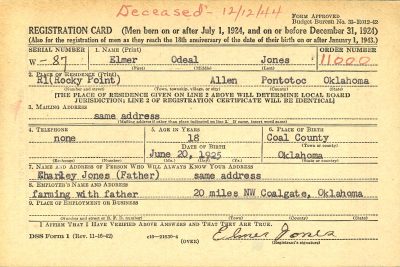 Deceased - 12/12/44
Form Approved
Budget Bureau No. 33-R012-42
REGISTRATION CARD (Men born on or after July 1, 1924, and on or before December 31, 1924)
(Also for the registration of men as they reach the 18th anniversary of the date of their birth on or after January 1, 1943.)
SERIAL NUMBER 1. NAME (Print) ORDER NUMBER
W - 87 Elmer Odeal Jones 11000
(First) (Middle) (Last)
2. PLACE OF RESIDENCE (Print)
(Rocky Point) Allen Pontotoc Oklahoma
(Number and street) (Town, township, village, or city) (County) (State)
[THE PLACE OF RESIDENCE GIVEN ON LINE 2 ABOVE WILL DETERMINE LOCAL BOARD
JURISDICTION; LINE 2 OF REGISTRATION CERTIFICATE WILL BE IDENTICAL]
3. MAILING ADDRESS
same address
(Mailing address if other than place indicated on line 2. If same, insert word same)
4. TELEPHONE 5. AGE IN YEARS 6. PLACE OF BIRTH
none 18 Coal County
DATE OF BIRTH (Town or county)
June 20, 1925 Oklahoma
(Exchange) (Number) (Mo.) (Day) (Yr.) (State or country)
7. NAME AND ADDRESS OF PERSON WHO WILL ALWAYS KNOW YOUR ADDRESS
Charley Jones (Father) same address
8. EMPLOYER'S NAME AND ADDRESS
farming with father 20 miles NW Coalgate, Oklahoma
9. PLACE OF EMPLOYMENT OR BUSINESS
(Number and street or R. F. D. number) (Town) (County) (State)
I AFFIRM THAT I HAVE VERIFIED ABOVE ANSWERS AND THAT THEY ARE TRUE.
DSS Form 1 (Rev. 11-16-42) (OVER) Elmer Jones
(Registrant's signature)